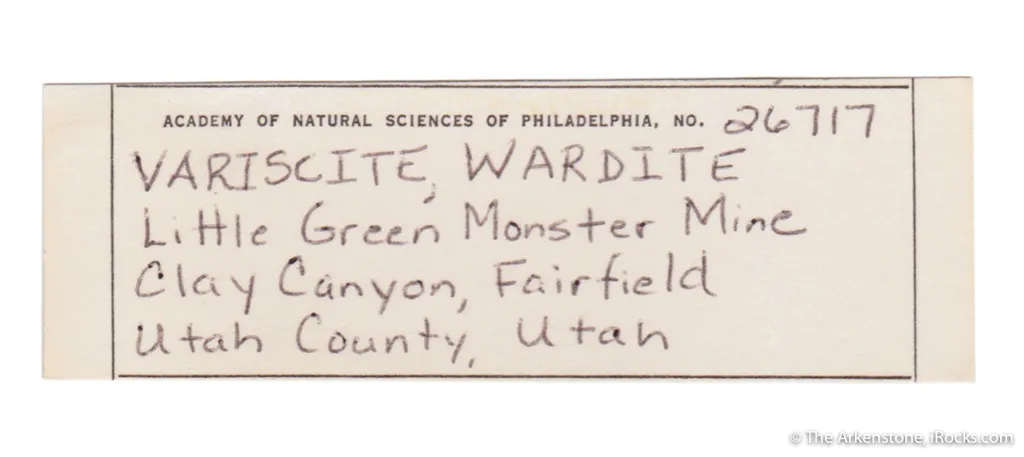 ACADEMY OF NATURAL SCIENCES OF PHILADELPHIA, NO. 26717
VARISCITE, WARDITE
Little Green Monster Mine
Clay Canyon, Fairfield
Utah County, Utah
© The Arkenstone, iRocks.com